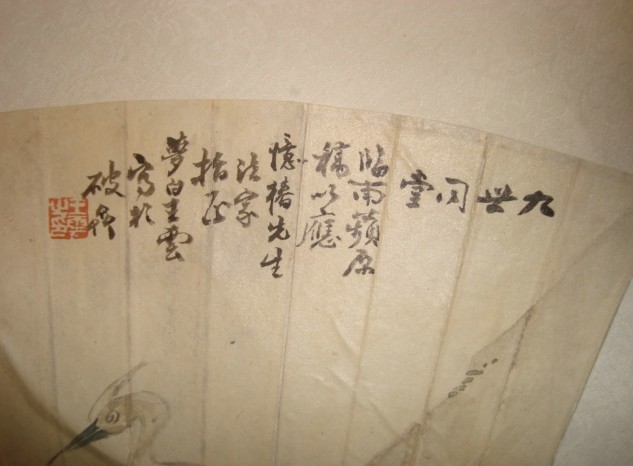 九世同堂
臨南蘋原
稿以應
憶椿先生
法家
指正
夢白王雲
寫於
破